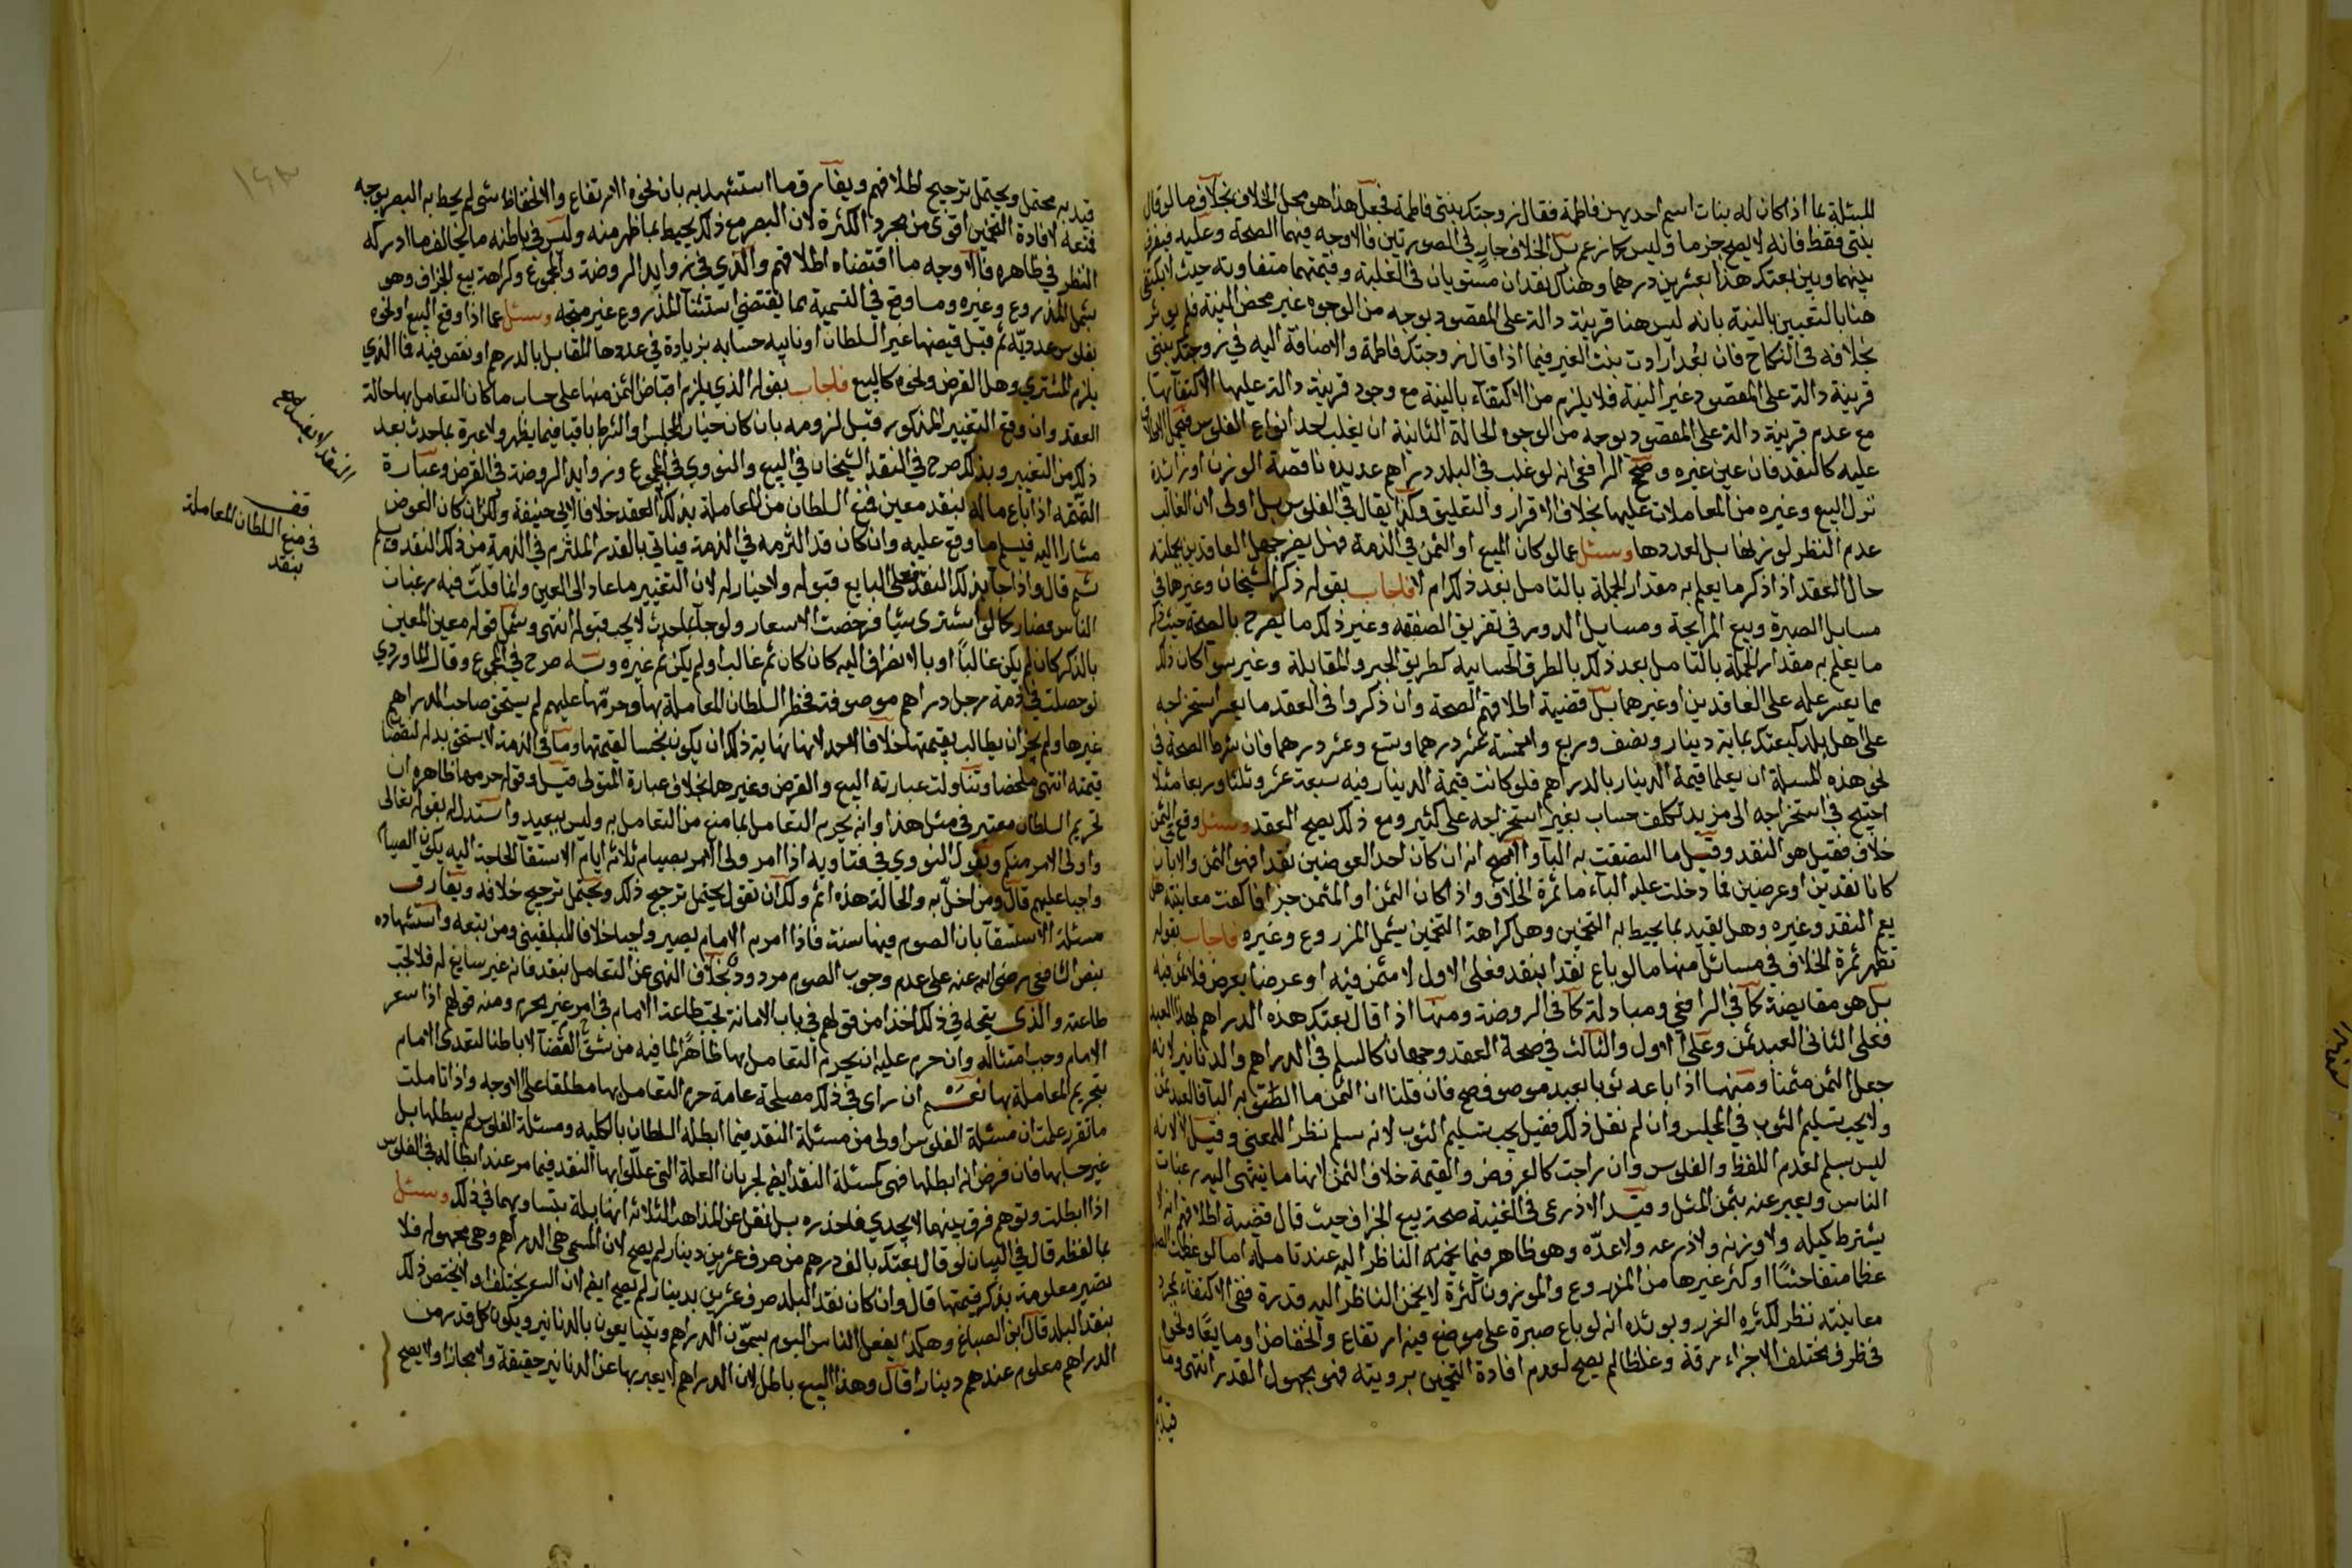 المسئلة بما اذا كان له بنات اسم احديهن فاطمة فقال زوجتك بنتى فاطمة فجعل هذا هو محل الخلاف بخلاف ما لو قال
بنتى فقط فانه لا يصح جزما وليس كما زعم بل الخلاف جار في الصورتين فالاوجه فيهما الصحة وعليه فيفرق
بينهما وبين بعتك هذا بعشرين درهما وهناك نقدان مستويان في الغلبة وقيمتهما متفاوته حيث لا يكتفى
هنا بالتعيين بالنية بانه ليس هنا قرينة دالة على المقصود بوجه من الوجوه غير محض النية فلم يوثر
بخلافه في النكاح فان بُعد ارادت بنت الغير فيما اذا قال زوجتك فاطمة والاضافة اليه في زوجتك بنتى
قرينة دالة على المقصود غير النية فلا يلزم من الاكتفاء بالنية مع وجود قرينة دالة عليها الاكتفآ بها
مع عدم قرينة دالة على المقصود بوجه من الوجوه الحالة الثانية ان يغلب احد انواع الفلوس فيحمل الاطلاق
عليه كالنقد فان عين غيره وصحح الرافعي انه لو غلب في البلد دراهم عدديه ناقصة الوزن او زائدة
نزل البيع وغيره من المعاملات عليها بخلاف الاقرار والتعليق وكذا يقال في الفلوس بل اولى لان الغالب
عدم النظر لوزنها بل لعددها وسئل عما لو كان المبيع او الثمن في الذمة فهل يضر جهل العاقدين بجملته
حال العقد اذا ذكر ما يعلم به مقدار الجملة بالتامل بعد ذلك ام لا فاجاب بقوله ذكر الشيخان وغيرهما في
مسايل الصبرة وبيع المرابحة ومسايل الدور في تفريق الصفقه وغير ذلك ما يصرح بالصحة حيث ذكر
ما يعلم به مقدار الجملة بالتامل بعد ذلك بالطرق الحسابيه كطريق الجبر والمقابلة وغيره سوآ كان ذلك
مما يعسر علمه على العاقدين او غيرهما بل قضية اطلاقهم الصحة وان ذكروا في العقد ما يعسر استخراجه
على اهل بلد كبعتك بماية دينار ونصف وربع وخمسة عشر درهما وتسع وعشر درهما فان شرط الصحة في
نحو هذه المسئلة ان يعلما قيمة الدينار بالدراهم فلو كانت قيمة الدينار فيه سبعة عشر وثلثا وربعا مثلا
احتيج في استخراجه الى مزيد تكلف حساب بغير استخراجه على كثير ومع ذلك يصح العقد وسئل وقع في الثمن
خلاف فقيل هو النقد وقيل ما التصقت به البآ والاصح انه ان كان احد العوضين نقدا فهو الثمن والا بان
كانا نقدين او عرضين فما دخلت عليه الباء ما ثمرة الخلاف واذا كان الثمن او المثمن جزافا كفت معاينته هل
يعم النقد وغيره وهل يقيد بما يحيط به التخمين وهل كراهة التخمين يشمل المزروع وغيره فاجاب بقوله
تظهر ثمرة الخلاف في مسائل منها ما لو باع نقدا بنقد فعلى الاول لا مثمن فيه او عرضا بعرض فلا ثمن فيه
بل هو مقايضة كما في الرافعي ومبادلة كما في الروضة ومنها اذا قال بعتك هذه الدراهم بهذا العبد
فعلى الثانى العبد ثمن وعلى الاول والثالث في صحة العقد وجهان كالسلم في الدراهم والدنانير لانه
جعل الثمن مثمنا ومنها اذا باعه ثوبا بعبد موصوف صح فان قلنا ان الثمن ما التصق به البآ فالعبد ثمن
ولا يجب تسليم الثوب في المجلس وان لم نقل ذلك فقيل يجب تسليم الثوب لانه سلم نظرا للمعنى وقيل لا لانه
ليس بسلم لعدم اللفظ والفلوس وان راجت كالعروض والقيمة خلاف الثمن لانها ما ينتهى اليه رغبات
الناس ويعبر عنه بثمن المثل وقيد الاذرعى في الغنية صحة بيع الجزاف حيث قال قضية اطلاقهم انه لا
يشترط كيله ولا وزنه ولا ذرعه ولا عدّه وهو ظاهر فيما يخمنه الناظر اليه عند تامله اما لو عظمت الصبرة
عظما متفاحشًا او كثر غيرها من المذروع والموزون كثرة لا يخمن الناظر اليه قدره ففى الاكتفاء بمجرد
معاينته نظر لكثرة الغرر ويويده انه لو باع صبرة على موضع فيه ارتفاع وانخفاض او مايعًا ونحوا
في ظرف مختلف الاجزاء رقة وغلظا لم يصح لعدم افادة التخمين برويته فهو مجهول القدر انتهى وما
قيد به
قيد به محتمل ويحتمل ترجيح اطلاقهم ويفارق ما استشهد به بان نحوه الارتفاع والانخفاظ شى لم يحط به البصر بوجه
فمنعه لافادة التخمين اقوى من مجرد الكثرة لان البصر مع ذلك يحيط بما ظهر منه وليس في باطنه ما يخالف ما ادركه
النظر في ظاهره فالاوجه ما اقتضاه اطلاقهم والذي في زوايد الروضة والمجموع وكراهة بيع الجزاف وهو
يشمل المذروع وغيره وما وقع في التسمية بما يقتضي استثنآ المذروع غير متجه وسئل عما اذا وقع البيع او نحوه
بفلوس عدديّة ثم قبل قبضها غير السلطان او نايبه حسابه بزيادة في عددها المقابل بالدرهم او نقص فيه فما الذي
يلزم المشتري وهل القرض ونحوه كالبيع فاجاب بقوله الذي يلزم اقباض الثمن منها على حساب ما كان التعامل بها حالة
العقد وان وقع التغيير المذكور قبل لزومه بان كان خيار المجلس او الشرط باقيا فيما يظهر ولا عبرة بما حدث بعد
ذلك من التغيير وبذلك صرح في النقد الشيخان في البيع والنووي في المجموع وزوايد الروضة في القرض وعبارة
التتمه اذا باع ماله بنقد معين فمنع السلطان من المعاملة بذلك العقد خلافا لابي حنيفة ولكن ان كان العوض
مشارا اليه فيسلم ما وقع عليه وان كان قد التزمه في الذمة فياتي بالقدر الملتزم في الذمة من ذلك النقد ويسلم
ثم قال واذا جآ بذلك النقد فعلى البايع قبوله ولا خيار له لان التغيير ما عاد الى العين وانما قلّت فيه رغبات
الناس فصار كما لو اشترى شيئا فرخصت الاسعار ولو جآ بما حدث لا يجب قبوله انتهى وشمل قوله معين المعين
بالذكر كان لم يكن غالبًا او بالانصراف اليه كان كان ثم غالب او لم يكن ثم غيره وبه صرح في المجموع وقال الماوردي
لو حصلت في ذمة رجل دراهم موصوفة فحظر السلطان المعاملة بها وحرّمها عليهم لم يستحق صاحب الدراهم
غيرها ولم يجز ان يطالب بقيمتها خلافا لاحمد لانها نهاية ذلك ان يكون بخسا لقيمتها وما في الذمة لا يستحق بدله لنقصا
قيمته انتهى ملخصا وتناولت عبارته البيع والقرض وغيرهما بخلاف عبارة المتولى قيل وقوله حرمها ظاهره ان
تحريم السلطان معتبر في مثل هذا وانه يحرم التعامل بما منع من التعامل به وليس ببعيد واستدل له بقوله تعالى
واولى الامر منكم وبقول النووي في فتاويه اذا امر ولى الامر بصيام ثلاثه ايام الاستسقآ لحاجة اليه يكون الصيام
واجبا عليهم قال ومن اخلّ به والحالة هذه اثم ولك ان تقول يحتمل ترجيح ذلك ويحتمل ترجيح خلافه ويفارق
مسئلة الاستسقآ بان الصوم فيها سنة فاذا امر به الامام يصير واجبا خلافا للبلقيني ومن تبعه واستشهاده
بنص الشافعي رضى الله عنه على عدم وجوب الصوم مردود بخلاف النهى عن التعامل بنقد فانه غير سايغ له فلا تجب
طاعته والذى يتجه في ذلك اخذا من قولهم في باب الامامة تجب طاعة الامام في امر غير محرم ومنه قولهم اذا سعر
الامام وجب امتثاله وان حرم عليه ان يحرم التعامل بها ظاهرًا لما فيه من شق العصا لا باطنا لتعدى الامام
بتحريم المعاملة بها نعم ان راى في ذلك مصلحة عامة حرم التعامل بها مطلقا على الاوجه واذا تاملت
ما تقرر علمت ان مسئلة الفلوس اولى من مسئلة النقد فيما ابطله السلطان بالكليه ومسئلة الفلوس لم يبطلها بل
غير حسابها فان فرض انه ابطلها فهى كمسئلة النقد ايضا لجريان العلة التى عللوا بها النقد فيما مر عند ابطاله في الفلوس
اذا ابطلت وتوهم فرق بينهما لا يجدي فاحذره بل نقل عن المذاهب الثلاثة انها قايلة بتساويهما في ذلك وسئل
بما لفظه قال في البيان لو قال بعتك بالف درهم من صرف عشرين دينار لم يصح لان المسمى هي الدراهم وهي مجهوله فلا
تصير معلومة بذكر قيمتها قال وان كان نقد البلد صرف عشرين بدينار لم يصح ايضا لان السعر يختلف ولا يختص ذلك
بنقد البلد قال ابن الصباغ وهكذا يفعل الناس اليوم يسمون الدراهم ويتبايعون بالدنانير ويكون كل قدر من
الدراهم معلوم عندهم دينارا قال وهذا البيع باطل لان الدراهم لا يعبر بها عن الدنانير حقيقة ولا مجازا ولا يصح
قف
في منع السلطان المعاملة
بنقد